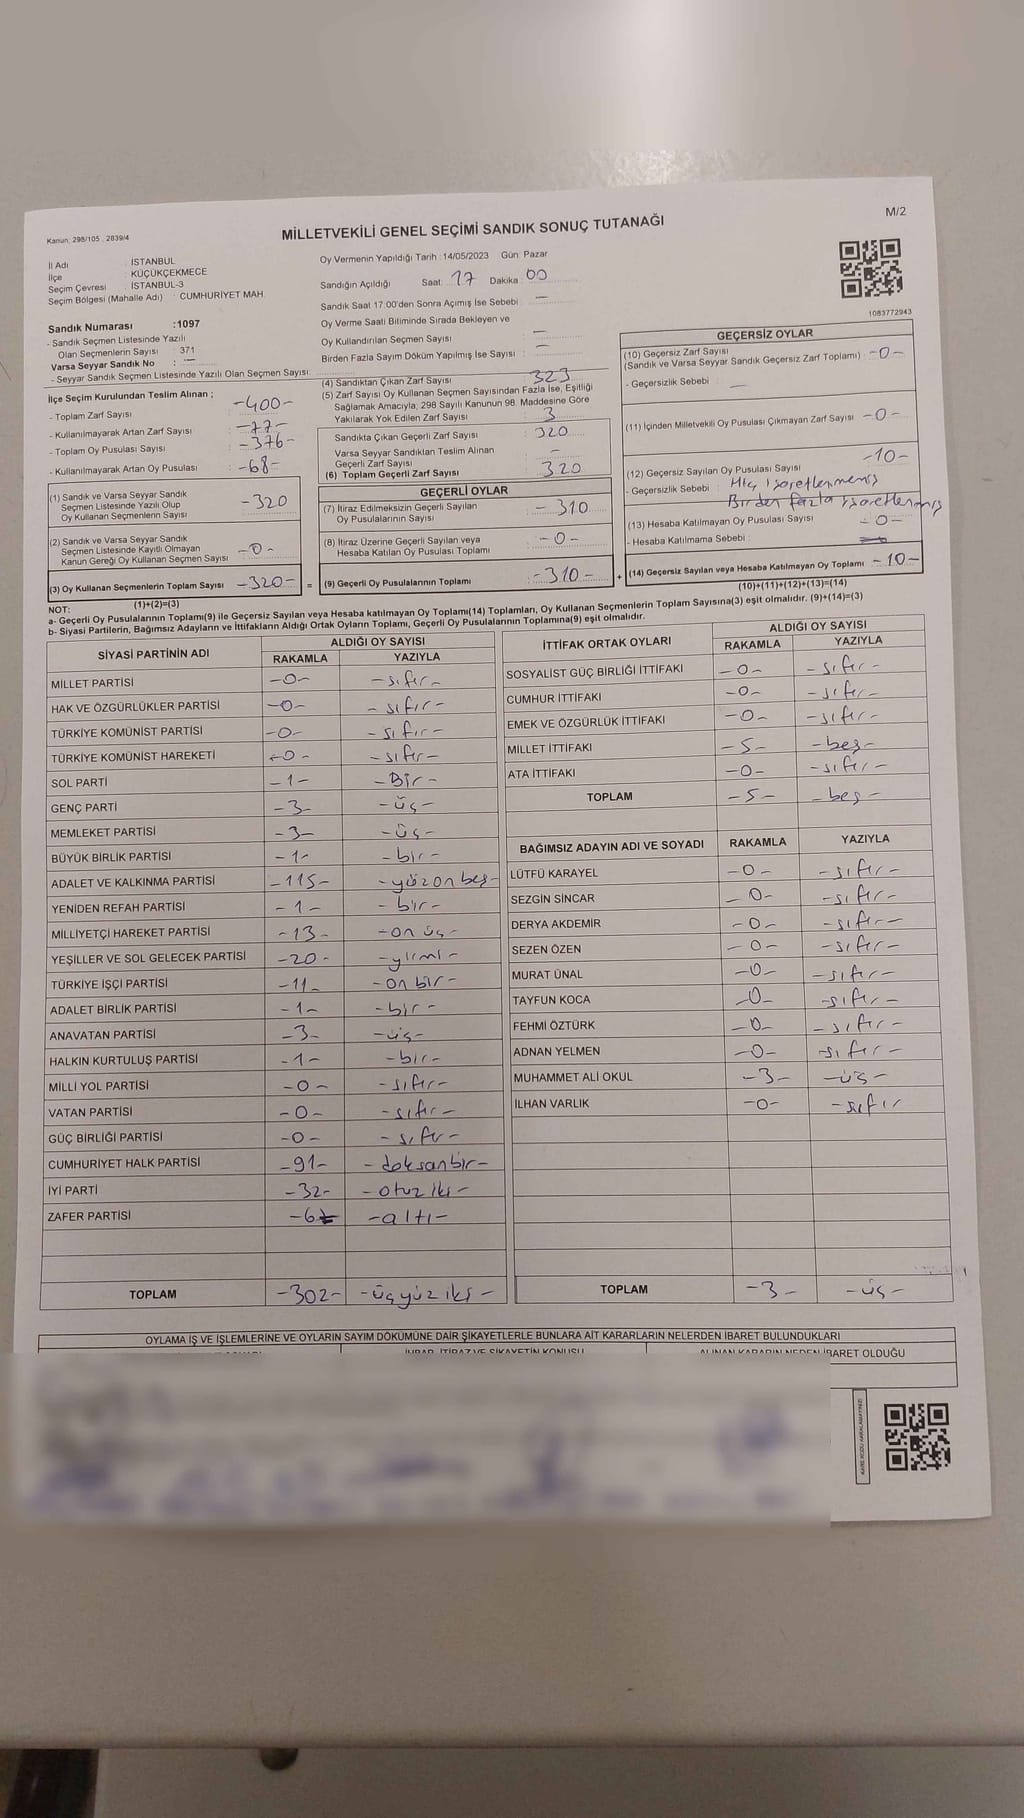 M/2
Kanun; 298/105 , 2839/4
MİLLETVEKİLİ GENEL SEÇİMİ SANDIK SONUÇ TUTANAĞI
İl Adı : İSTANBUL
İlçe : KÜÇÜKÇEKMECE
Seçim Çevresi : İSTANBUL-3
Seçim Bölgesi (Mahalle Adı) : CUMHURİYET MAH
Sandık Numarası :1097
- Sandık Seçmen Listesinde Yazılı
Olan Seçmenlerin Sayısı : 371
Varsa Seyyar Sandık No : —
- Seyyar Sandık Seçmen Listesinde Yazılı Olan Seçmen Sayısı:
Oy Vermenin Yapıldığı Tarih :14/05/2023 Gün: Pazar
Sandığın Açıldığı Saat: 17 Dakika: 00
Sandık Saat 17:00'den Sonra Açımış İse Sebebi : —
Oy Verme Saati Bitiminde Sırada Bekleyen ve
Oy Kullandırılan Seçmen Sayısı : —
Birden Fazla Sayım Döküm Yapılmış İse Sayısı : —
1083772943
İlçe Seçim Kurulundan Teslim Alınan ;
- Toplam Zarf Sayısı : -400-
- Kullanılmayarak Artan Zarf Sayısı : -77-
- Toplam Oy Pusulası Sayısı : -376-
- Kullanılmayarak Artan Oy Pusulası : -68-
(1) Sandık ve Varsa Seyyar Sandık
Seçmen Listesinde Yazılı Olup
Oy Kullanan Seçmenlerin Sayısı : -320
(2) Sandık ve Varsa Seyyar Sandık
Seçmen Listesinde Kayıtlı Olmayan
Kanun Gereği Oy Kullanan Seçmen Sayısı : -0-
(3) Oy Kullanan Seçmenlerin Toplam Sayısı : -320- =
(1)+(2)=(3)
(4) Sandıktan Çıkan Zarf Sayısı : 323
(5) Zarf Sayısı Oy Kullanan Seçmen Sayısından Fazla İse, Eşitliği
Sağlamak Amacıyla; 298 Sayılı Kanunun 98. Maddesine Göre
Yakılarak Yok Edilen Zarf Sayısı : 3
Sandıkta Çıkan Geçerli Zarf Sayısı : 320
Varsa Seyyar Sandıktan Teslim Alınan
Geçerli Zarf Sayısı : —
(6) Toplam Geçerli Zarf Sayısı : 320
GEÇERLİ OYLAR
(7) İtiraz Edilmeksizin Geçerli Sayılan
Oy Pusulalarının Sayısı : -310
(8) İtiraz Üzerine Geçerli Sayılan veya
Hesaba Katılan Oy Pusulası Toplamı : -0-
(9) Geçerli Oy Pusulalarının Toplamı : -310- +
GEÇERSİZ OYLAR
(10) Geçersiz Zarf Sayısı
(Sandık ve Varsa Seyyar Sandık Geçersiz Zarf Toplamı) : -0-
- Geçersizlik Sebebi : —
(11) İçinden Milletvekili Oy Pusulası Çıkmayan Zarf Sayısı : -0-
(12) Geçersiz Sayılan Oy Pusulası Sayısı : -10-
- Geçersizlik Sebebi : Hiç işaretlenmemiş
Birden fazla işaretlenmiş
(13) Hesaba Katılmayan Oy Pusulası Sayısı : -0-
- Hesaba Katılmama Sebebi :
(14) Geçersiz Sayılan veya Hesaba Katılmayan Oy Toplamı : -10-
(10)+(11)+(12)+(13)=(14)
NOT:
a- Geçerli Oy Pusulalarının Toplamı(9) ile Geçersiz Sayılan veya Hesaba katılmayan Oy Toplamı(14) Toplamları, Oy Kullanan Seçmenlerin Toplam Sayısına(3) eşit olmalıdır. (9)+(14)=(3)
b- Siyasi Partilerin, Bağımsız Adayların ve İttifakların Aldığı Ortak Oyların Toplamı, Geçerli Oy Pusulalarının Toplamına(9) eşit olmalıdır.
SİYASİ PARTİNİN ADI ALDIĞI OY SAYISI
RAKAMLA YAZIYLA
MİLLET PARTİSİ -0- -sıfır-
HAK VE ÖZGÜRLÜKLER PARTİSİ -0- -sıfır-
TÜRKİYE KOMÜNİST PARTİSİ -0- -sıfır-
TÜRKİYE KOMÜNİST HAREKETİ -0- -sıfır-
SOL PARTİ -1- -Bir-
GENÇ PARTİ -3- -üç-
MEMLEKET PARTİSİ -3- -üç-
BÜYÜK BİRLİK PARTİSİ -1- -bir-
ADALET VE KALKINMA PARTİSİ -115- -yüzonbeş-
YENİDEN REFAH PARTİSİ -1- -bir-
MİLLİYETÇİ HAREKET PARTİSİ -13- -on üç-
YEŞİLLER VE SOL GELECEK PARTİSİ -20- -yirmi-
TÜRKİYE İŞÇİ PARTİSİ -11- -onbir-
ADALET BİRLİK PARTİSİ -1- -bir-
ANAVATAN PARTİSİ -3- -üç-
HALKIN KURTULUŞ PARTİSİ -1- -bir-
MİLLİ YOL PARTİSİ -0- -sıfır-
VATAN PARTİSİ -0- -sıfır-
GÜÇ BİRLİĞİ PARTİSİ -0- -sıfır-
CUMHURİYET HALK PARTİSİ -91- -doksanbir-
İYİ PARTİ -32- -otuz iki-
ZAFER PARTİSİ -6- -altı-
TOPLAM -302- -üçyüz iki-
İTTİFAK ORTAK OYLARI ALDIĞI OY SAYISI
RAKAMLA YAZIYLA
SOSYALİST GÜÇ BİRLİĞİ İTTİFAKI -0- -sıfır-
CUMHUR İTTİFAKI -0- -sıfır-
EMEK VE ÖZGÜRLÜK İTTİFAKI -0- -sıfır-
MİLLET İTTİFAKI -5- -beş-
ATA İTTİFAKI -0- -sıfır-
TOPLAM -5- -beş-
BAĞIMSIZ ADAYIN ADI VE SOYADI RAKAMLA YAZIYLA
LÜTFÜ KARAYEL -0- -sıfır-
SEZGİN SİNCAR -0- -sıfır-
DERYA AKDEMİR -0- -sıfır-
SEZEN ÖZEN -0- -sıfır-
MURAT ÜNAL -0- -sıfır-
TAYFUN KOCA -0- -sıfır-
FEHMİ ÖZTÜRK -0- -sıfır-
ADNAN YELMEN -0- -sıfır-
MUHAMMET ALİ OKUL -3- -üç-
İLHAN VARLIK -0- -sıfır
TOPLAM -3- -üç-
OYLAMA İŞ VE İŞLEMLERİNE VE OYLARIN SAYIM DÖKÜMÜNE DAİR ŞİKAYETLERLE BUNLARA AİT KARARLARIN NELERDEN İBARET BULUNDUKLARI
İHBAR, İTİRAZ VE ŞİKAYETİN KONUSU ALINAN KARARIN NEDEN İBARET OLDUĞU